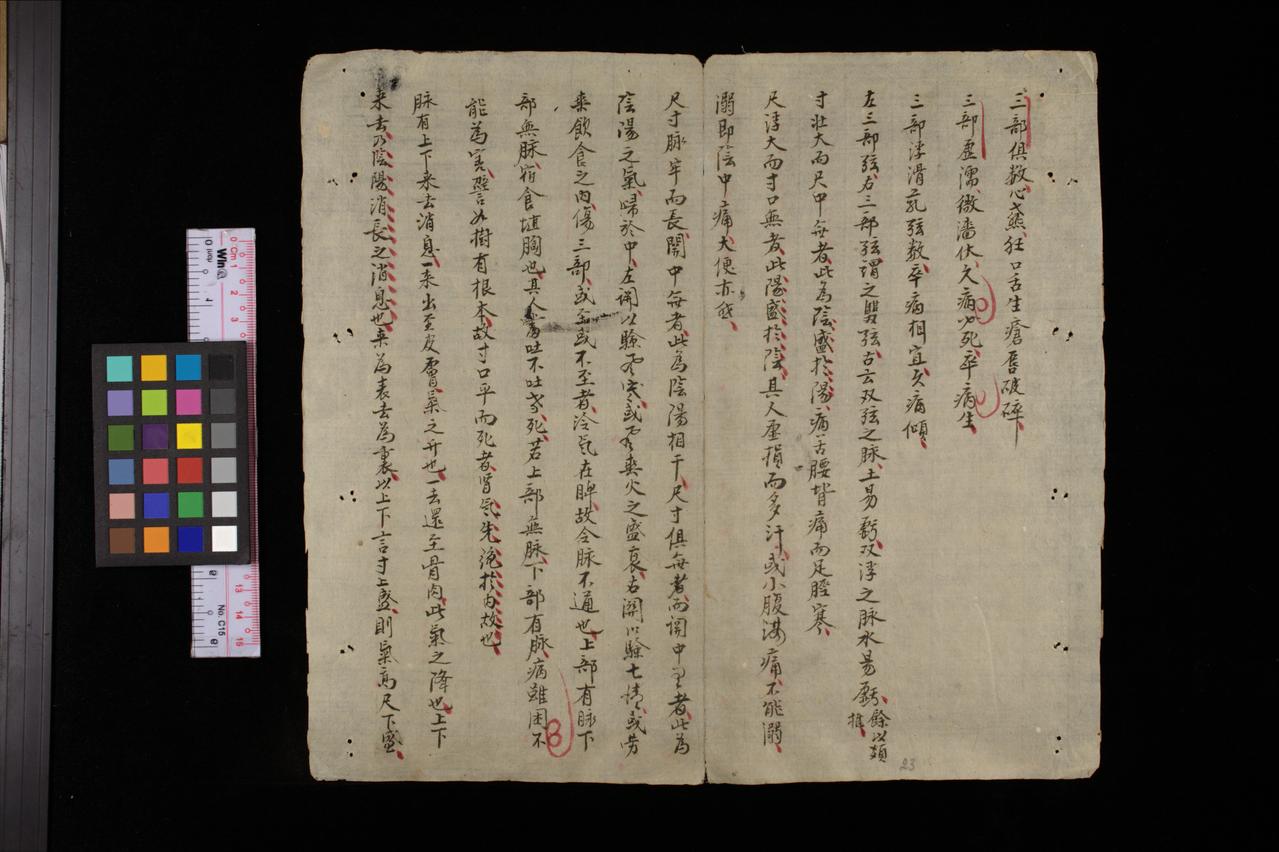 三部俱数心蒸狂口舌生瘡唇破碎
三部虚濡微濇伏久病必死卒病生
三部浮滑芤弦数卒病相宜久病傾
左三部弦右三部弦謂之雙弦古云双弦之脉土易虧双浮之脉水易虧餘以類推
寸壮大而尺中無者此為陰盛於陽病苦腰背痛而足脛寒
尺浮大而寸口無者此陽盛於陰其人虚損而多汗或小腹满痛不能溺
溺即陰中痛大便亦然
尺寸脉牢而長関中無者此為陰陽相干尺寸俱無者而関中有者此為
陰陽之氣歸於中左関以驗受寒或受熱火之盛衰右関以驗七情或劳
来飲食之内傷三部或至或不至者冷氣在脾故令脉不通也上部有脉下
部無脉宿食填胸也其人當吐不吐者死若上部無脉下部有脉病雖困不
能為害譬如樹有根本故寸口平而死者腎氣先絶於内故也
脉有上下来去消息一来出至皮膚氣之升也一去還至骨肉此氣之降也上下
来去乃陰陽消長之消息也来為表去為裏以上下言寸上盛則氣高尺下盛
23
Cm 1 2 3
13 14 15
No. C15